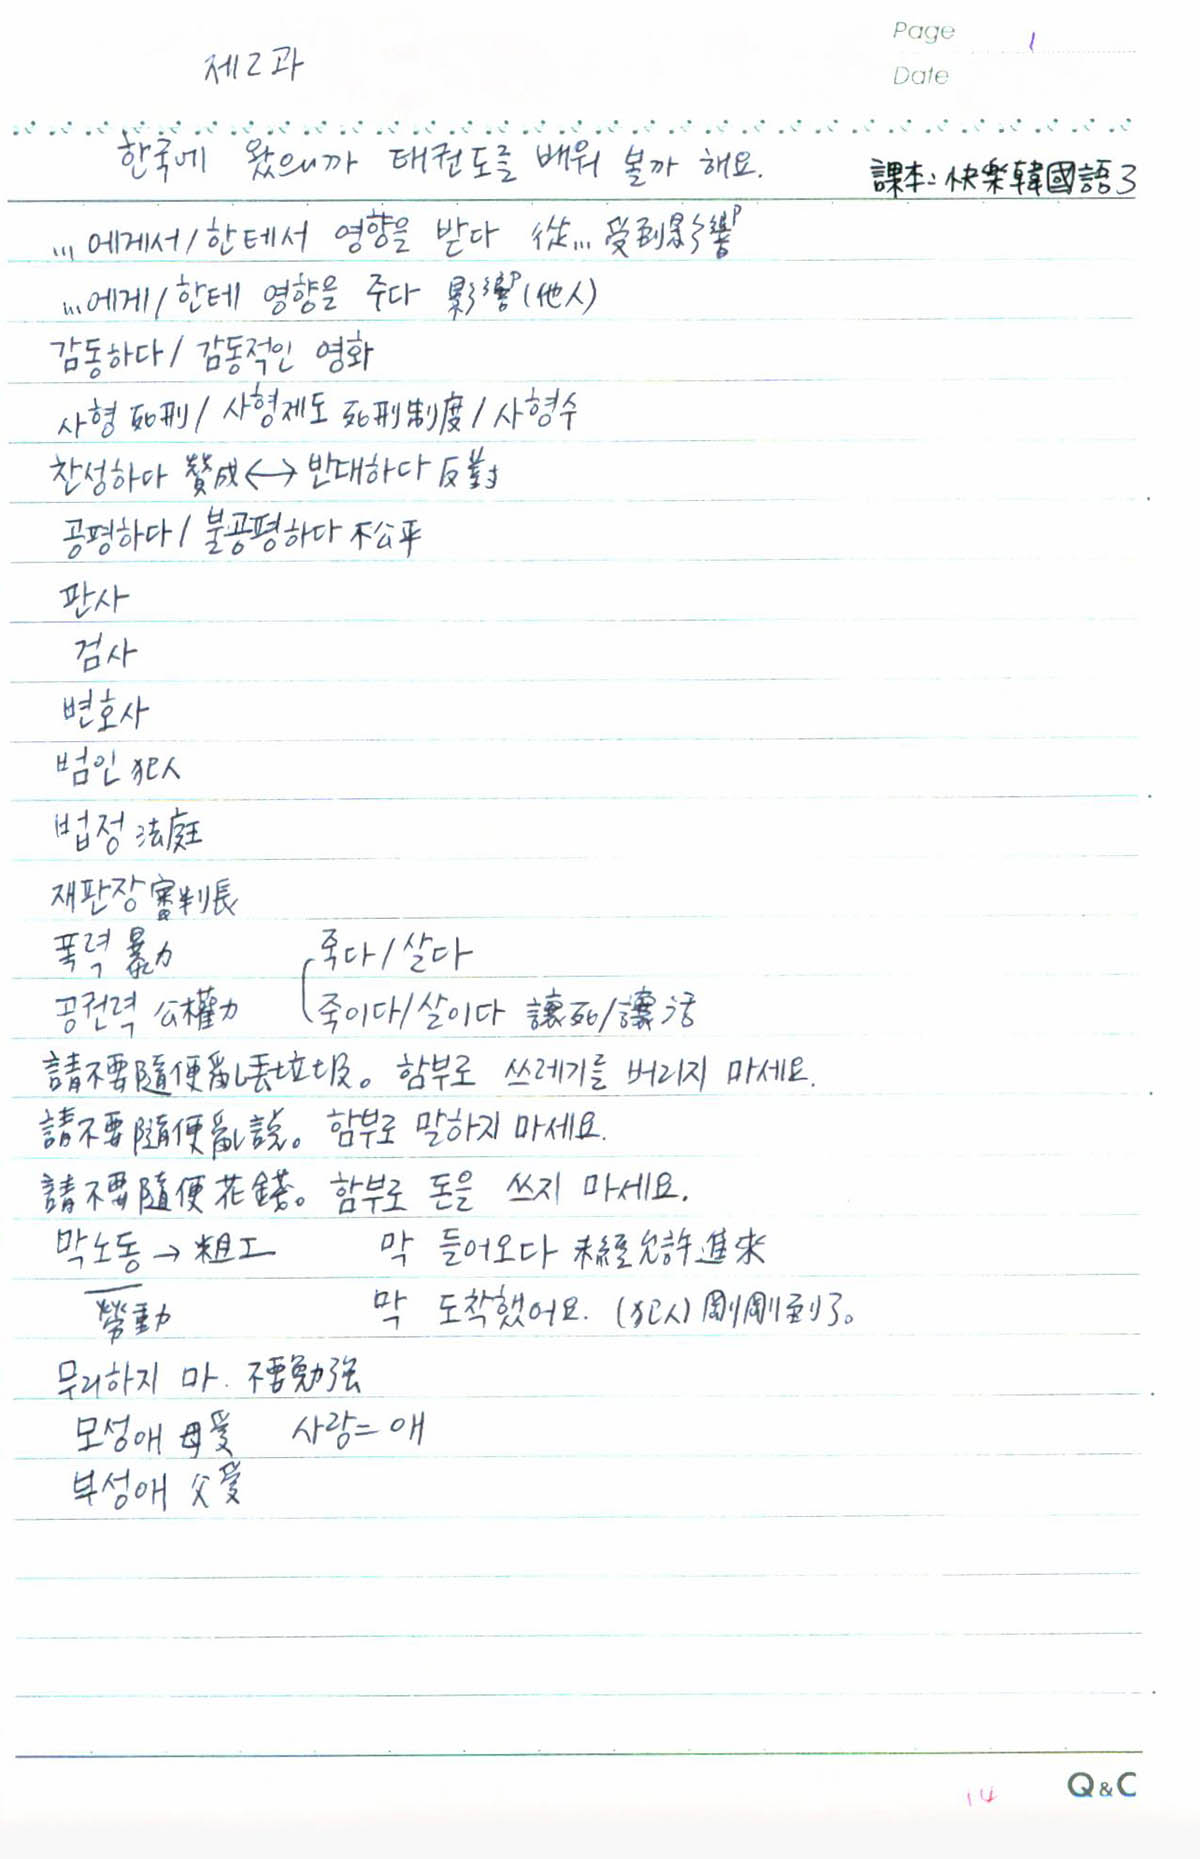 Page 1
제2과
Date
한국에 왔으니까 태권도를 배워 볼까 해요.
課本：快樂韓國語3
...에게서/한테서 영향을 받다 從...受到影響
...에게/한테 영향을 주다 影響(他人)
감동하다/감동적인 영화
사형 死刑/사형제도 死刑制度/사형수
찬성하다 贊成<->반대하다 反對
공평하다/불공평하다 不公平
판사
검사
변호사
범인 犯人
법정 法庭
재판장 審判長
폭력 暴力 죽다/살다
공권력 公權力 죽이다/살이다 讓死/讓活
請不要隨便亂丟垃圾。함부로 쓰레기를 버리지 마세요.
請不要隨便亂說。함부로 말하지 마세요.
請不要隨便花錢。함부로 돈을 쓰지 마세요.
막노동→粗工 막 들어오다 未經允許進來
勞動 막 도착했어요. (犯人)剛剛到了。
무리하지 마. 不要勉強
모성애 母愛 사랑=애
부성애 父愛
Q&C
14